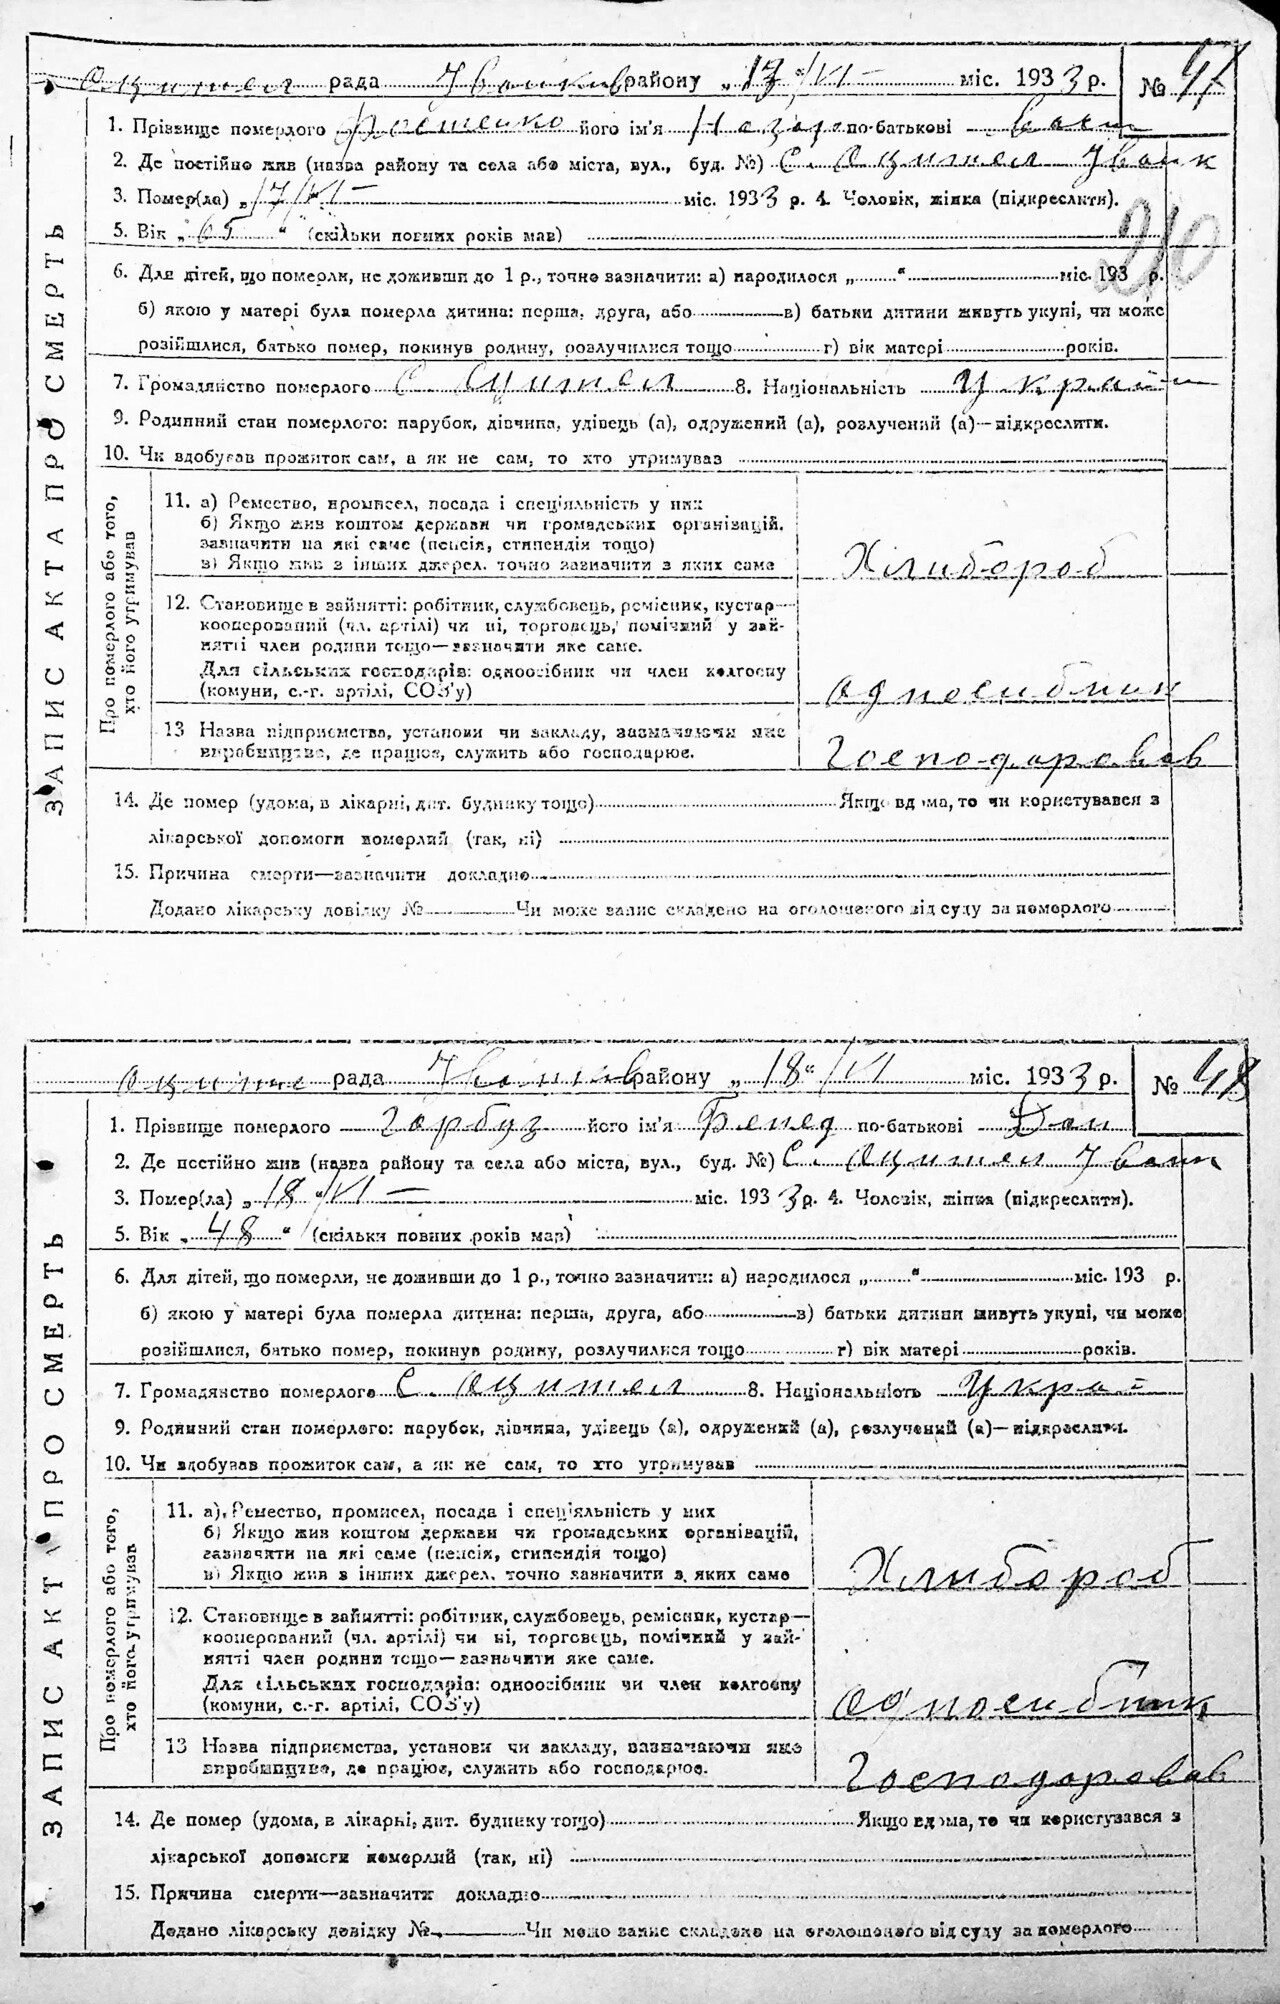 Оцител рада Іванків району „ 13 "/VI — міс. 1933 р. № 47
1. Прізвище померлого його ім'я Назар по-батькові Васи
2. Де постійно жив (назва району та села або міста, вул., буд. №) С. Оцител Іванк
3. Помер(ла) „ 17/VI — міс. 1933 р. 4. Чоловік, жінка (підкреслити).
5. Вік „ 65 " (скільки повних років мав)
210
6. Для дітей, що померли, не доживши до 1 р., точно зазначити: а) народилося „ " міс. 193 р.
б) якою у матері була померла дитина: перша, друга, або в) батьки дитини живуть укупі, чи може
розійшлися, батько помер, покинув родину, розлучилися тощо г) вік матері років.
7. Громадянство померлого С. Оцител 8. Національність Украї
9. Родинний стан померлого: парубок, дівчина, удівець (а), одружений (а), розлучений (а)—підкреслити.
10. Чи здобував прожиток сам, а як не сам, то хто утримував
ЗАПИС АКТА ПРО СМЕРТЬ
Про померлого або того,
хто його утримував
11. а) Ремество, промисел, посада і спеціяльність у них
б) Якщо жив коштом держави чи громадських організацій,
зазначити на які саме (пенсія, стипендія тощо)
в) Якщо жив з інших джерел, точно зазначити з яких саме
Хлибороб
12. Становище в зайнятті: робітник, службовець, ремісник, кустар—
кооперований (чл. артілі) чи ні, торговець, помічний у зай-
нятті член родини тощо—зазначити яке саме.
Для сільських господарів: одноосібник чи член колгоспу
(комуни, с.-г. артілі, СОЗ'у)
односибник
13 Назва підприємства, установи чи закладу, зазначаючи яке
виробництво, де працює, служить або господарює.
Господаровав
14. Де помер (удома, в лікарні, дит. будинку тощо) Якщо вдома, то чи користувався з
лікарської допомоги померлий (так, ні)
15. Причина смерти—зазначити докладно
Додано лікарську довідку № Чи може запис складено на оголошеного від суду за померлого
Оцител рада Іванків району „ 18 "/VI міс. 1933 р. № 48
1. Прізвище померлого Горбуз його ім'я Бенед по-батькові Дан
2. Де постійно жив (назва району та села або міста, вул., буд. №) С. Оцител Іванк
3. Помер(ла) „ 18 "/VI — міс. 1933 р. 4. Чоловік, жінка (підкреслити).
5. Вік „ 48 " (скільки повних років мав)
6. Для дітей, що померли, не доживши до 1 р., точно зазначити: а) народилося „ " міс. 193 р.
б) якою у матері була померла дитина: перша, друга, або в) батьки дитини живуть укупі, чи може
розійшлися, батько помер, покинув родину, розлучилися тощо г) вік матері років.
7. Громадянство померлого С. Оцител 8. Національність Украї
9. Родинний стан померлого: парубок, дівчина, удівець (а), одружений (а), розлучений (а)—підкреслити.
10. Чи здобував прожиток сам, а як не сам, то хто утримував
ЗАПИС АКТА ПРО СМЕРТЬ
Про померлого або того,
хто його утримував
11. а) Ремество, промисел, посада і спеціяльність у них
б) Якщо жив коштом держави чи громадських організацій,
зазначити на які саме (пенсія, стипендія тощо)
в) Якщо жив з інших джерел, точно зазначити з яких саме
Хлибороб
12. Становище в зайнятті: робітник, службовець, ремісник, кустар—
кооперований (чл. артілі) чи ні, торговець, помічний у зай-
нятті член родини тощо—зазначити яке саме.
Для сільських господарів: одноосібник чи член колгоспу
(комуни, с.-г. артілі, СОЗ'у)
односибник
13 Назва підприємства, установи чи закладу, зазначаючи яке
виробництво, де працює, служить або господарює.
Господоровав
14. Де помер (удома, в лікарні, дит. будинку тощо) Якщо вдома, то чи користувався з
лікарської допомоги померлий (так, ні)
15. Причина смерти—зазначити докладно
Додано лікарську довідку № Чи може запис складено на оголошеного від суду за померлого